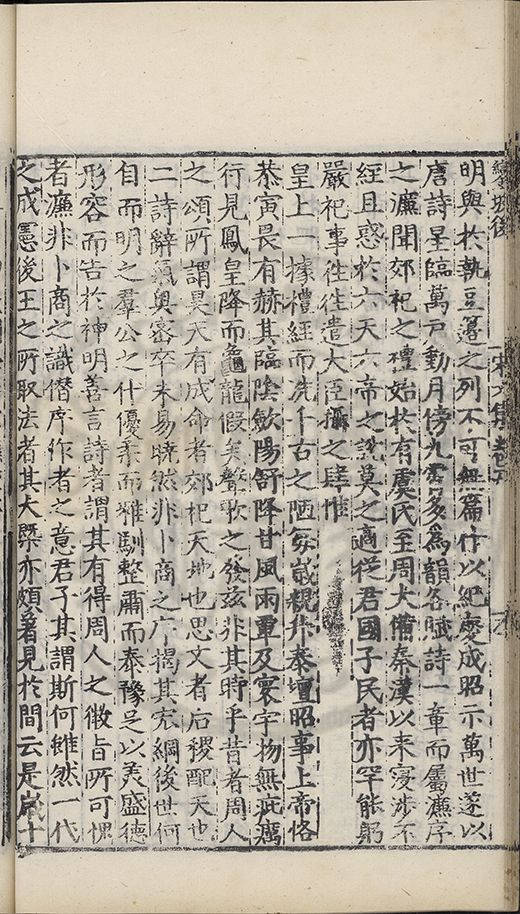 鑾坡後
宋 集卷
明與於執豆籩之列不可無篇什以紀慶成昭示萬世遂以
唐詩星臨萬戶動月傍九霄多為韻各賦詩一章而屬濂序
之濂聞郊祀之禮始於有虞氏至周大備秦漢以來寖涉不
經且惑於六天六帝之說莫之適從君國子民者亦罕能躬
嚴祀事徃徃遣大臣攝之肆惟
皇上一據禮經而洗千古之陋每歲親升泰壇昭事上帝恪
恭寅畏有赫其臨陰歛陽舒降甘風雨覃及寰宇物無疵癘
行見鳳皇降而龜龍假矣聲歌之發茲非其時乎昔者周人
之頌所謂昊天有成命者郊祀天地也思文者后稷配天也
二詩辭氣奧密卒未易曉然非卜商之序揭其宏綱後世何
自而明之羣公之什優柔而雅馴整肅而泰豫足以美盛德
形容而告於神明善言詩者謂其有得周人之微旨所可愧
者濂非卜商之識僭序作者之意君子其謂斯何雖然一代
之成憲後王之所取法者其大槩亦頗著見於間云是歲十